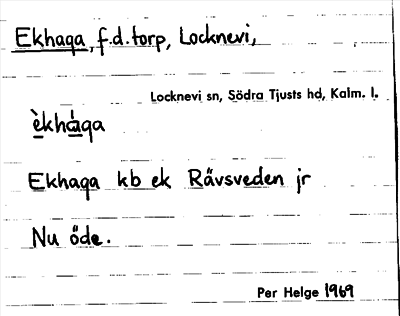 Ekhaga, f.d. torp, Locknevi,
Locknevi sn, Södra Tjusts hd, Kalm. l.
èkhàga
Ekhaga kb ek Råvsveden jr
Nu öde.
Per Helge 1969